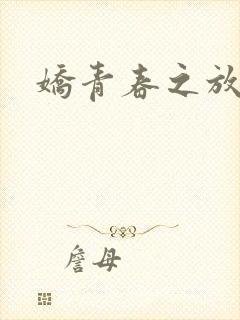 嬌青春之放
詹母